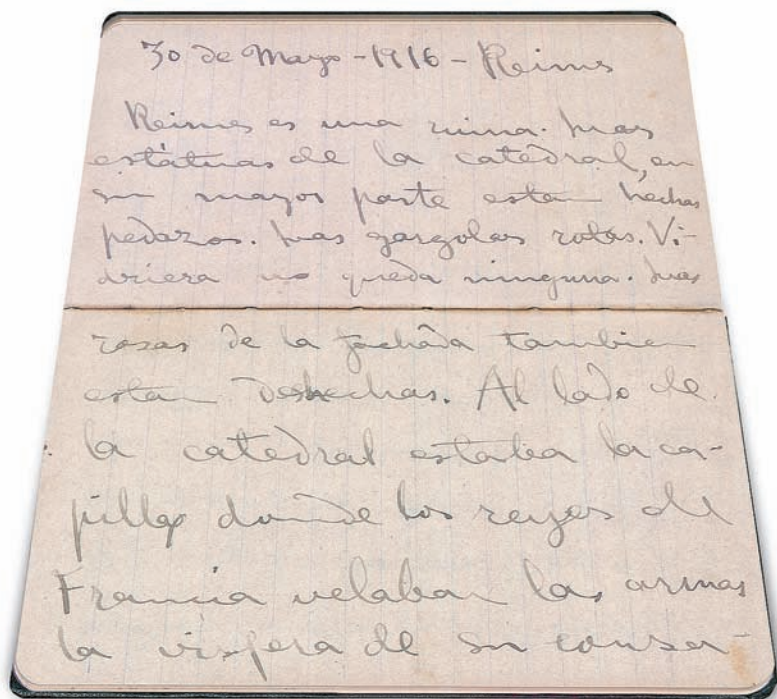 30 de Mayo - 1916 - Reims
Reims es una ruina. Las
estátuas de la catedral, en
su mayor parte estan hechas
pedazos. Las gargolas rotas. Vi-
driera no queda ninguna. Las
rosas de la fachada tambien
estan deshechas. Al lado de
la catedral estaba la ca-
pilla donde los reyes de
Francia velaban las armas
la vispera de su consa-